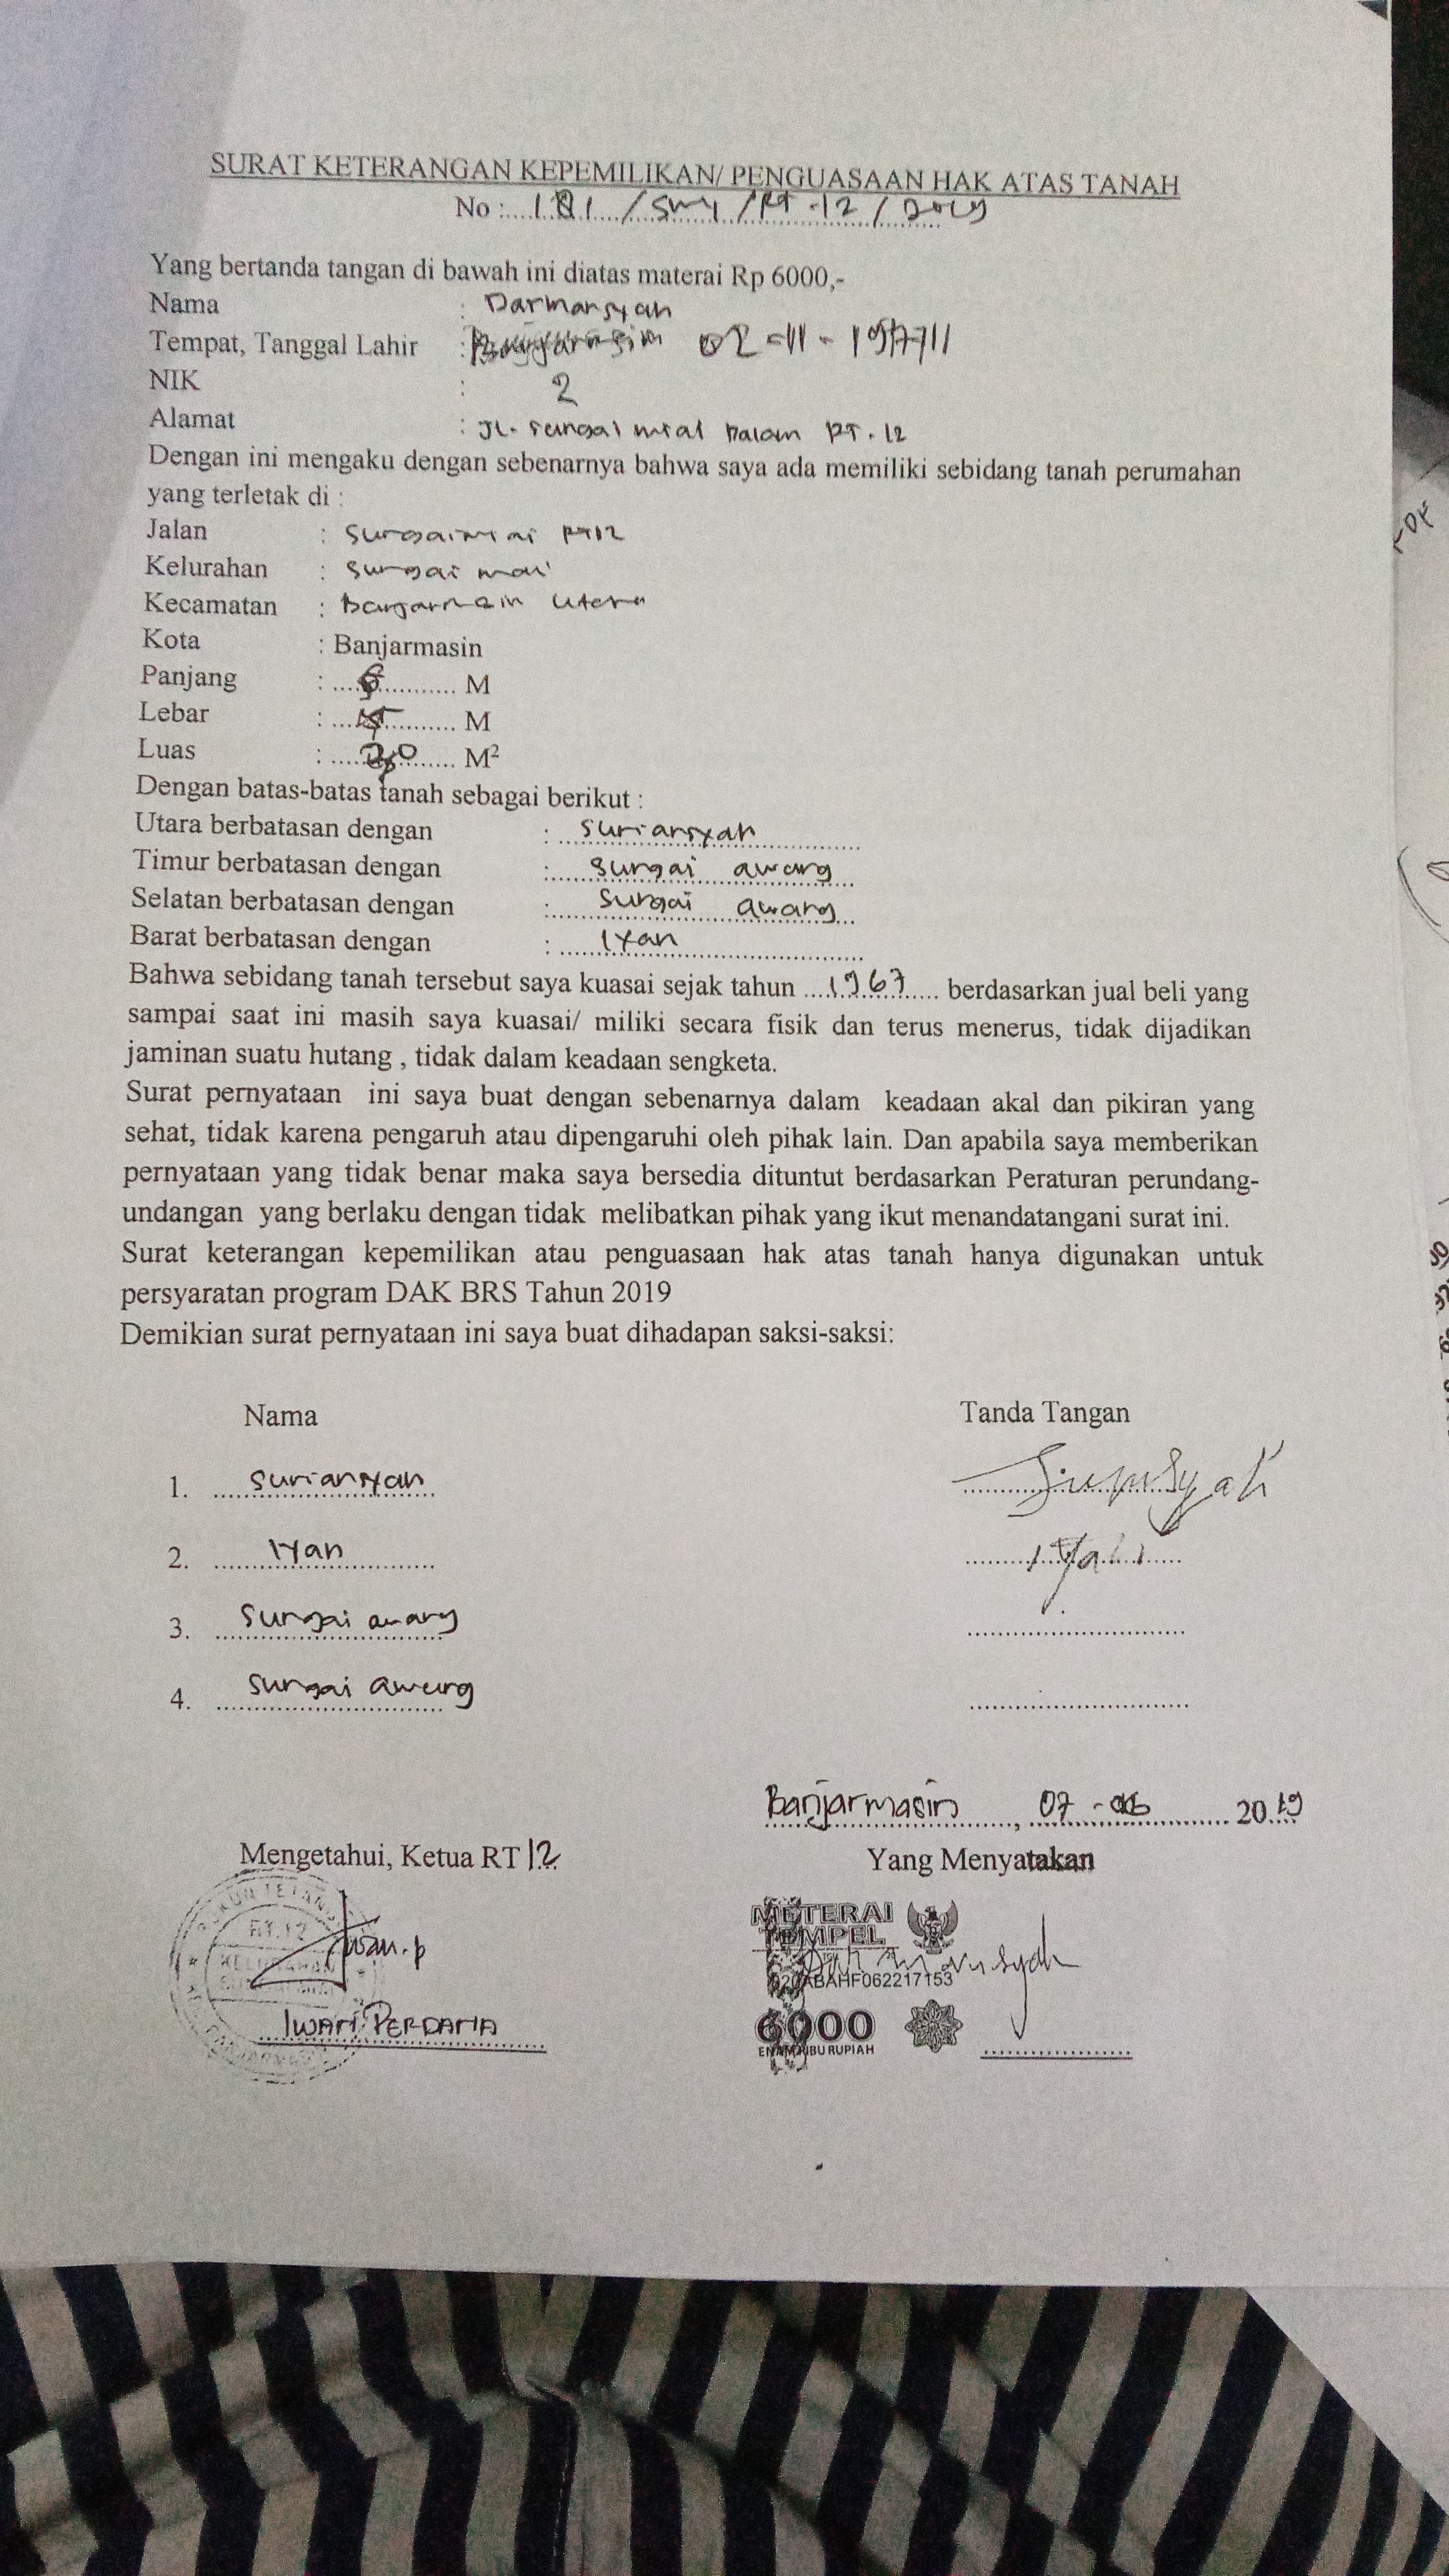 SURAT KETERANGAN KEPEMILIKAN/ PENGUASAAN HAK ATAS TANAH
No : 181 / SMI / RT.12 / 2019
Yang bertanda tangan di bawah ini diatas materai Rp 6000,-
Nama : Darmansyah
Tempat, Tanggal Lahir : Banjarmasin 02-11-
NIK :
Alamat : JL. Sungai Dalam RT.12
Dengan ini mengaku dengan sebenarnya bahwa saya ada memiliki sebidang tanah perumahan
yang terletak di :
Jalan :
Kelurahan : Sungai
Kecamatan : Banjarmasin Utara
Kota : Banjarmasin
Panjang : M
Lebar : M
Luas : M²
Dengan batas-batas tanah sebagai berikut :
Utara berbatasan dengan : Suriansyah
Timur berbatasan dengan : Sungai awang
Selatan berbatasan dengan : Sungai awang
Barat berbatasan dengan : Iyan
Bahwa sebidang tanah tersebut saya kuasai sejak tahun 1967 berdasarkan jual beli yang
sampai saat ini masih saya kuasai/ miliki secara fisik dan terus menerus, tidak dijadikan
jaminan suatu hutang , tidak dalam keadaan sengketa.
Surat pernyataan ini saya buat dengan sebenarnya dalam keadaan akal dan pikiran yang
sehat, tidak karena pengaruh atau dipengaruhi oleh pihak lain. Dan apabila saya memberikan
pernyataan yang tidak benar maka saya bersedia dituntut berdasarkan Peraturan perundang-
undangan yang berlaku dengan tidak melibatkan pihak yang ikut menandatangani surat ini.
Surat keterangan kepemilikan atau penguasaan hak atas tanah hanya digunakan untuk
persyaratan program DAK BRS Tahun 2019
Demikian surat pernyataan ini saya buat dihadapan saksi-saksi:
Nama Tanda Tangan
1. Suriansyah
2. Iyan
3. Sungai awang
4. Sungai awang
Banjarmasin, 07 - 2019
Mengetahui, Ketua RT 12 Yang Menyatakan
RT.12
METERAI
TEMPEL
ABAHF062217153
6000
ENAM RIBU RUPIAH
IWAN PERDANA